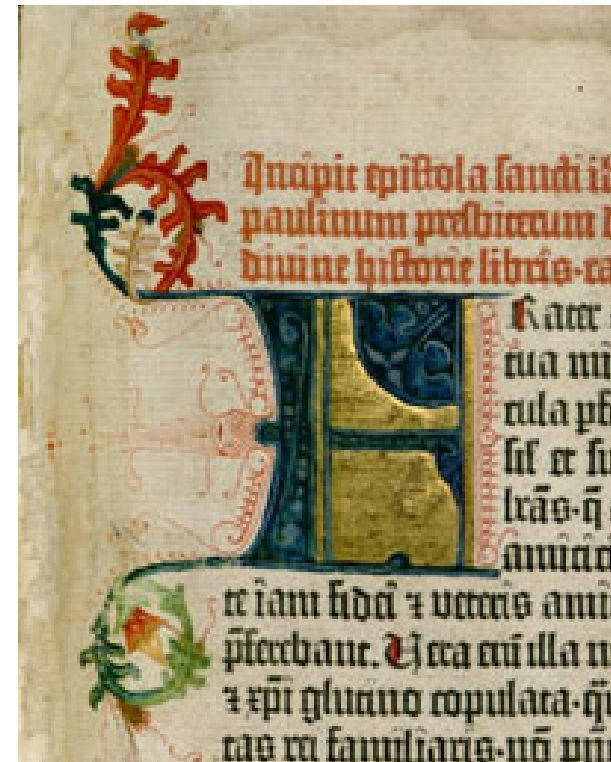 Incipit epistola sancti
paulinum presbiterum
divine historie libris·
F
Rater
tua mu
tula pf
sit et fi
lrãs·q̃
amicici
te iam fidei ⁊ veteris ami
p̃ferebant. Vera eni illa n
⁊ xp̃i glutino copulata·q̃
tas rei familiaris·nõ